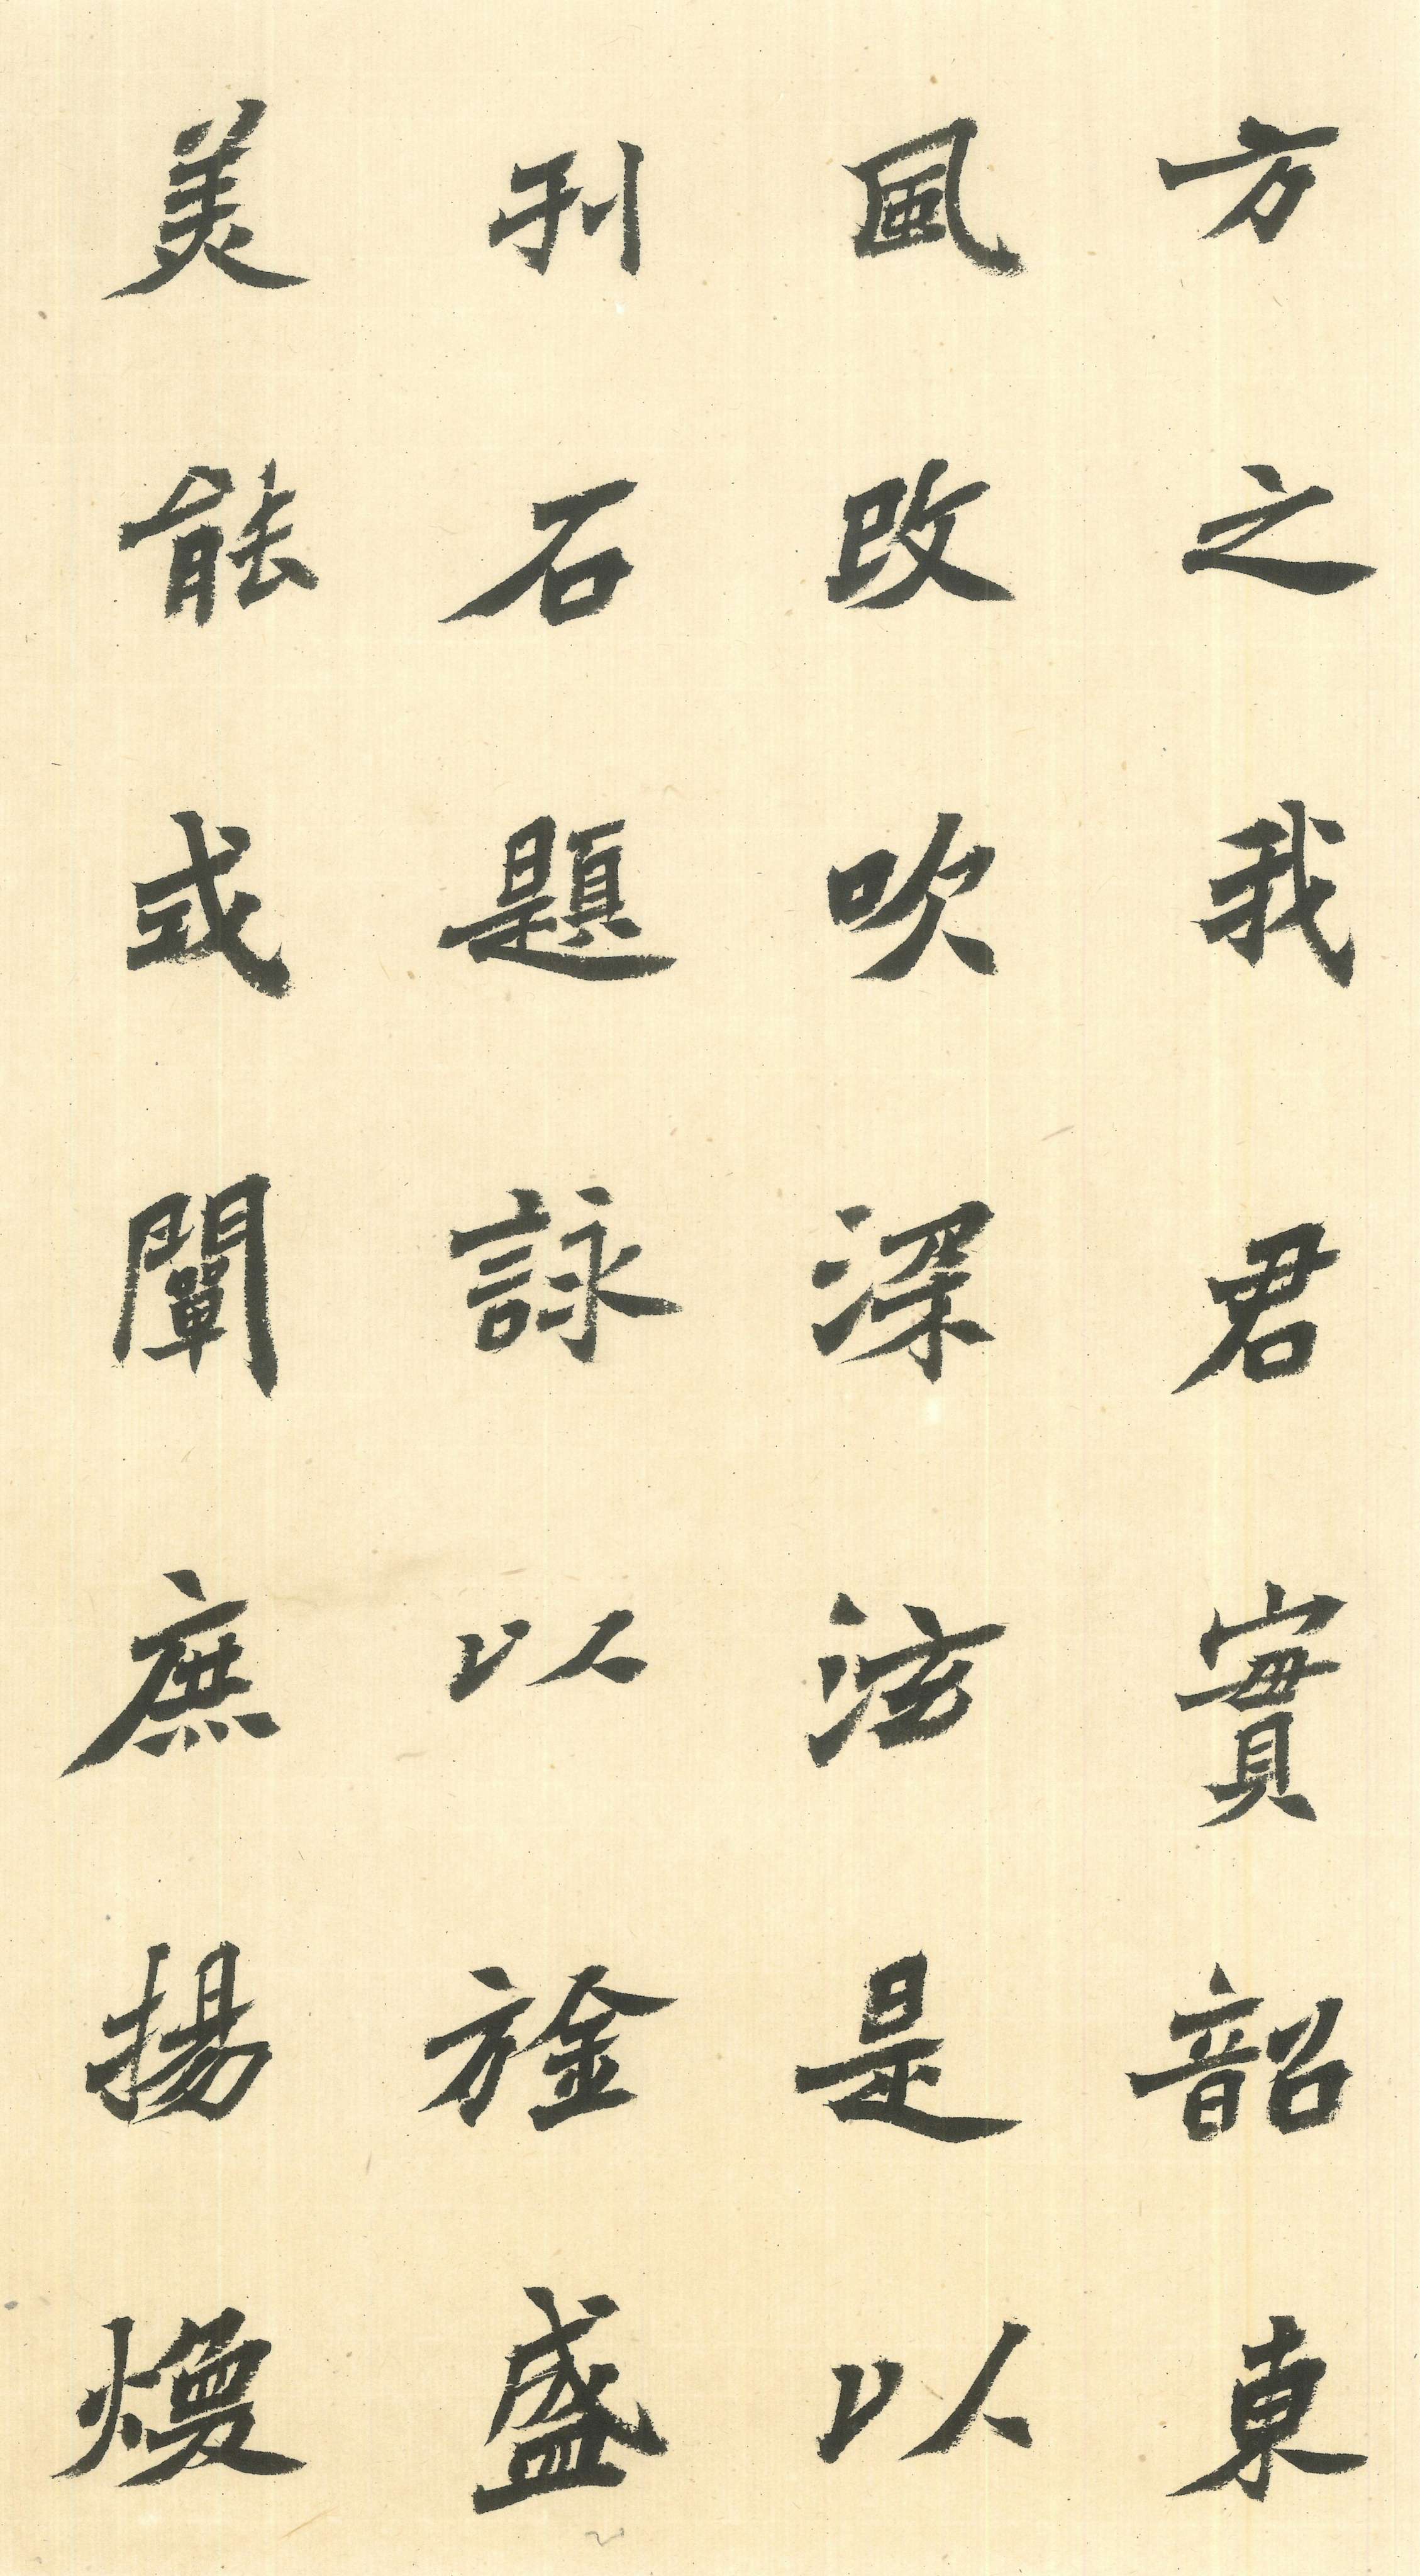 方之我君實韶東
風改吹深泫是以
刊石題詠以旌盛
美能或闡庶揚